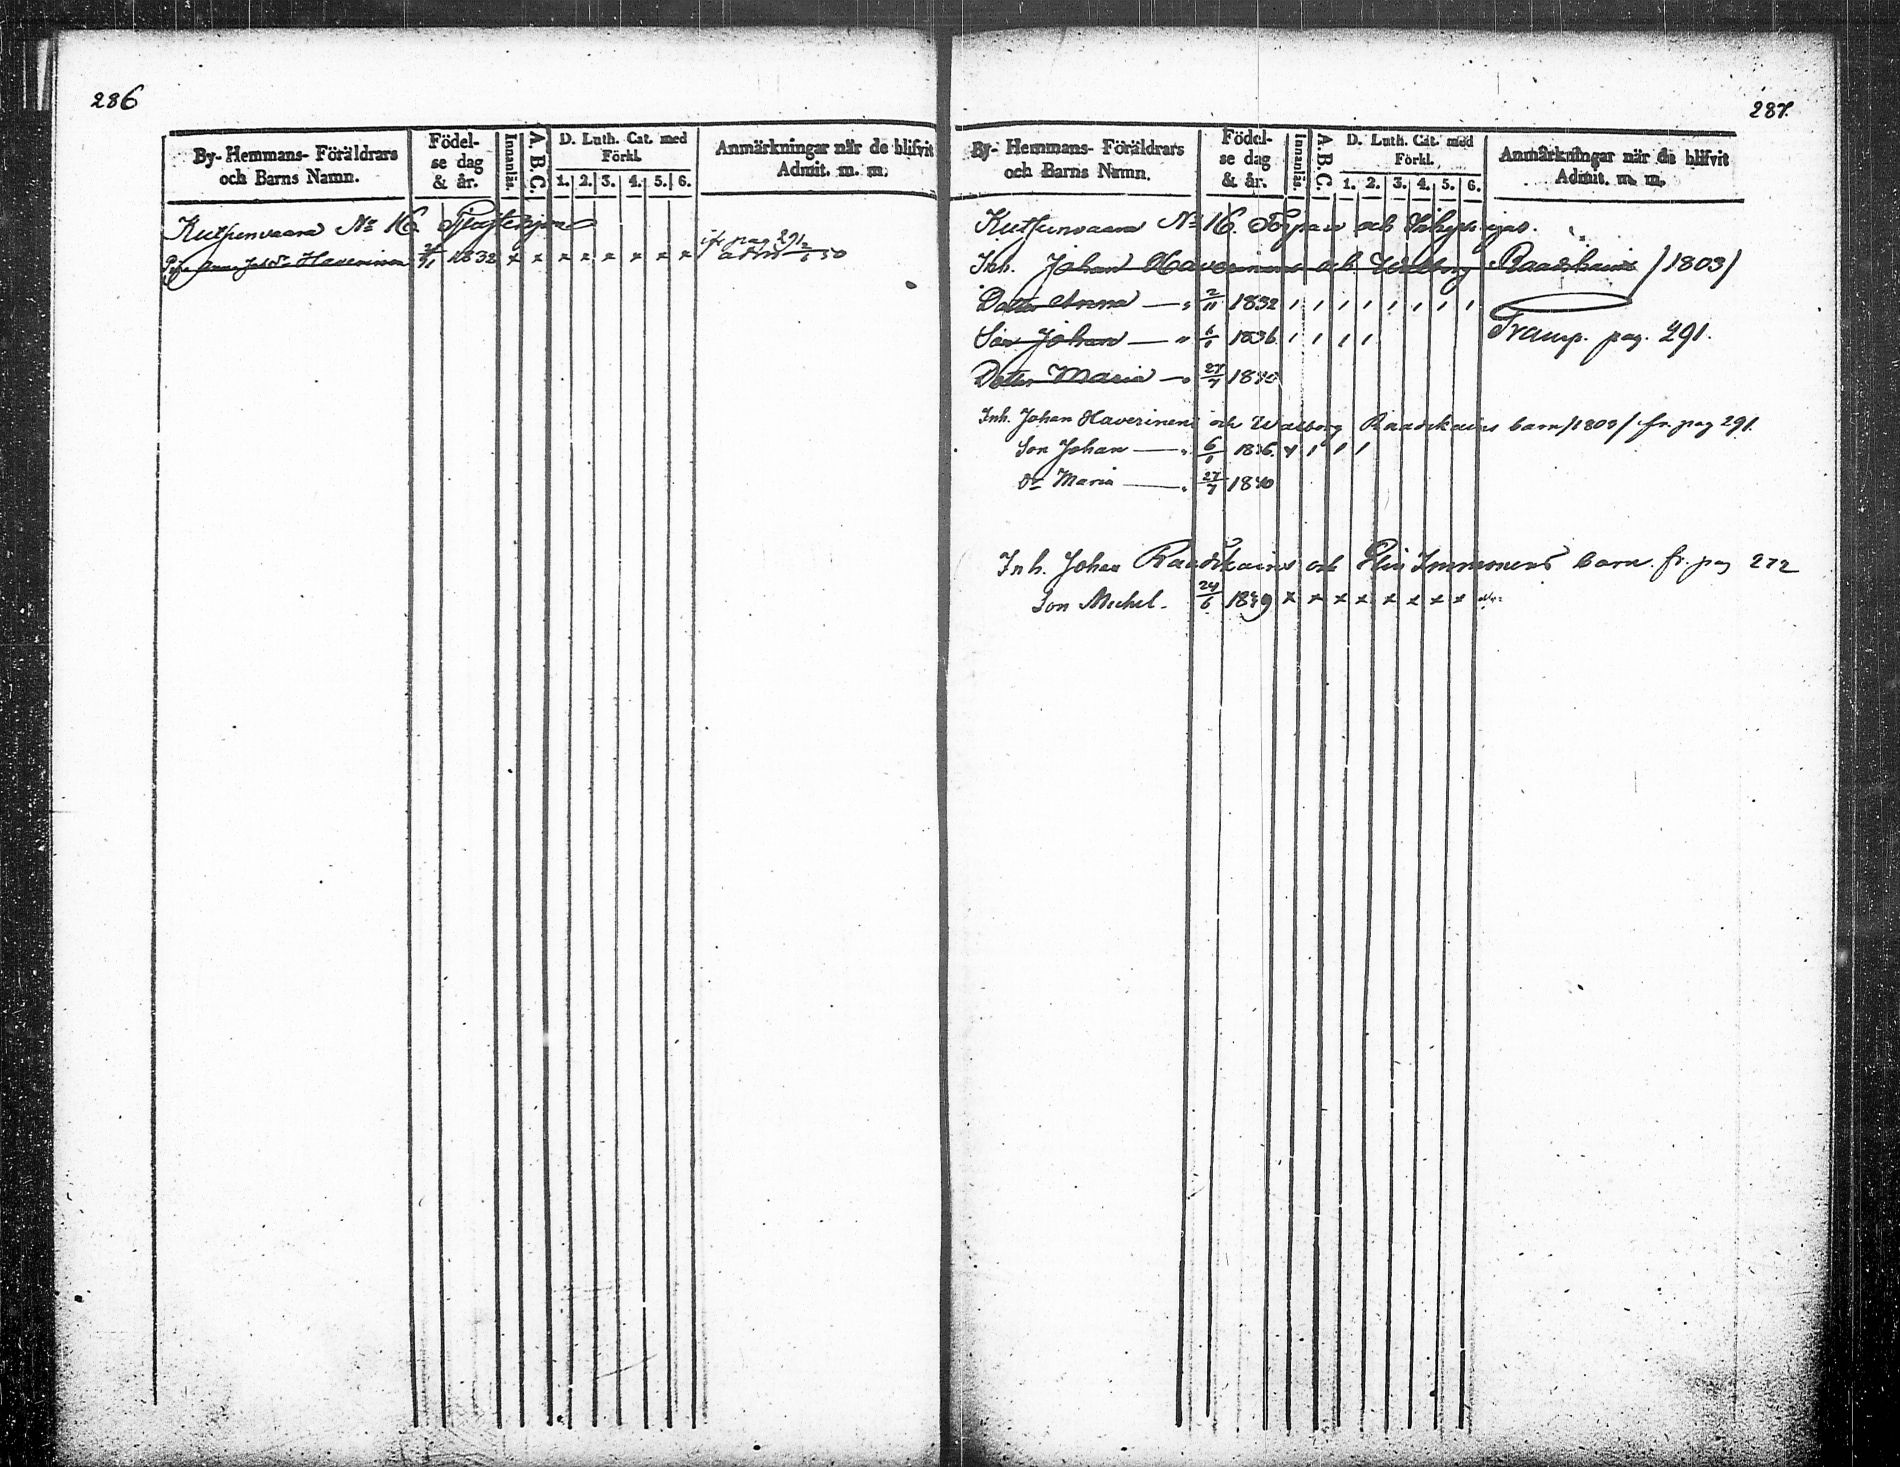 286
By- Hemmans- Föräldrars och Barns Namn.
Födelse dag & år.
Innanläs.
A. B. C.
D. Luth. Cat. med Förkl.
1. 2. 3. 4. 5. 6.
Anmärkningar när de blifvit Admit. m. m.
No 16.
Anna Haverinen 2/11 1832 x x x x x x x x
fr pag 291
287.
By- Hemmans- Föräldrars och Barns Namn.
Födelse dag & år.
Innanläs.
A. B. C.
D. Luth. Cat. med Förkl.
1. 2. 3. 4. 5. 6.
Anmärkningar när de blifvit Admit. m. m.
No 16. och
Inh. Johan Haverinens och Walborg Raadskains /1803/
Dotter Anna — " 2/11 1832 / / / / / / / /
Son Johan — " 6/1 1836 / / / /
Transp. pag. 291.
Dotter Maria — " 27/7 1840
Inh. Johan Haverinens och Walborg Raadskains barn /1803/ fr. pag 291.
Son Johan — " 6/1 1836
Dr Maria — " 27/7 1840
Inh. Johan Raadskains och Immonens barn. fr. pag 272
Son Michel. 24/6 x x x x x x x x